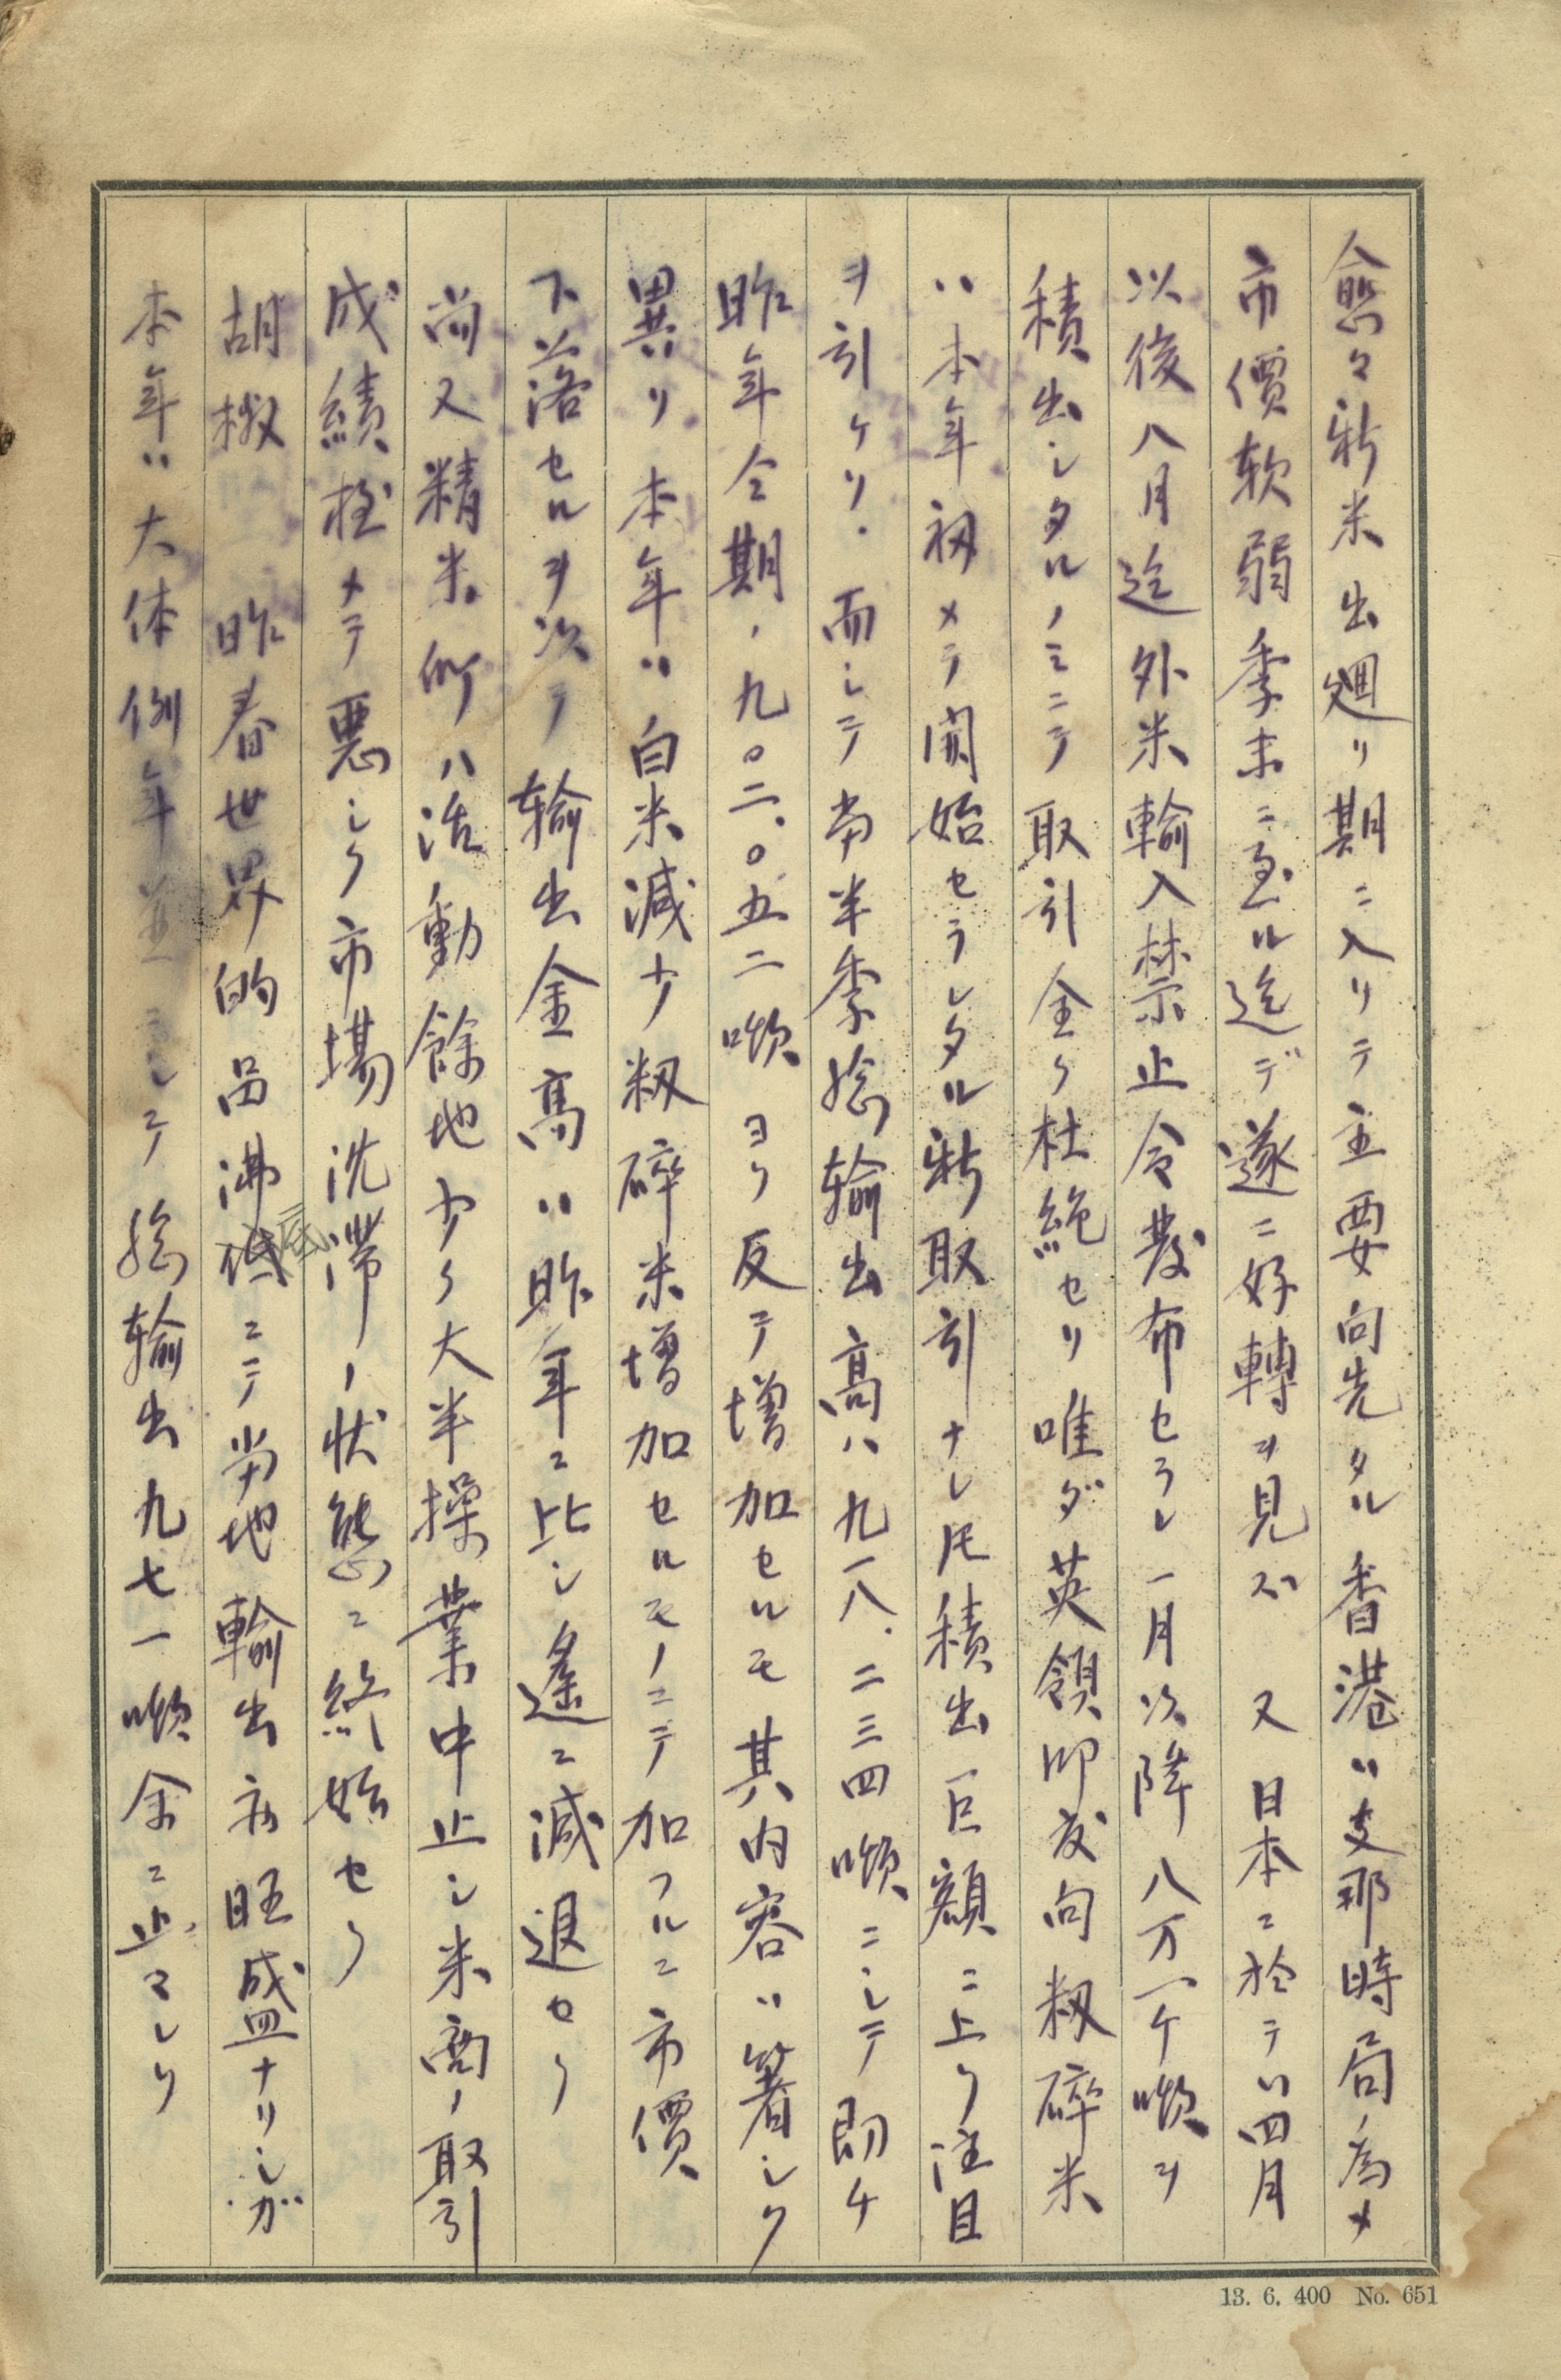 愈々新米出廻リ期ニ入リテ主要向先タル香港ハ支那時局ノ為メ
市價軟弱季末ニ至ル迄デ遂ニ好轉ヲ見ズ 又日本ニ於テハ四月
以後八月迄外米輸入禁止令發布セラレ一月以降八万一ケ噸ヲ
積出シタルノミニテ取引全ク杜絶セリ唯ダ英領印度向籾碎米
ハ本年初メテ開始セラレタル新取引ナレ𪜈積出巨額ニ上リ注目
ヲ引ケリ.而シテ当半季総輸出高ハ九一八.二三四噸ニシテ即チ
昨年仝期ノ九〇二.〇五二噸ヨリ反テ増加セルモ其内容ハ著シク
異リ本年ハ白米減少籾碎米増加セルモノニテ加フルニ市價
下落セルヲ以テ輸出金高ハ昨年ニ比シ遙ニ減退セリ
尚又精米所ハ活動餘地少ク大半操業中止シ米商ノ取引
成績極メテ悪シク市場沈滞ノ状態ニ終始セリ
胡椒 昨春世界的品沸底ニテ当地輸出亦旺盛ナリシガ
本年ハ大体例年並ニシテ総輸出九七一噸余ニ止マレリ
13. 6. 400 No. 651